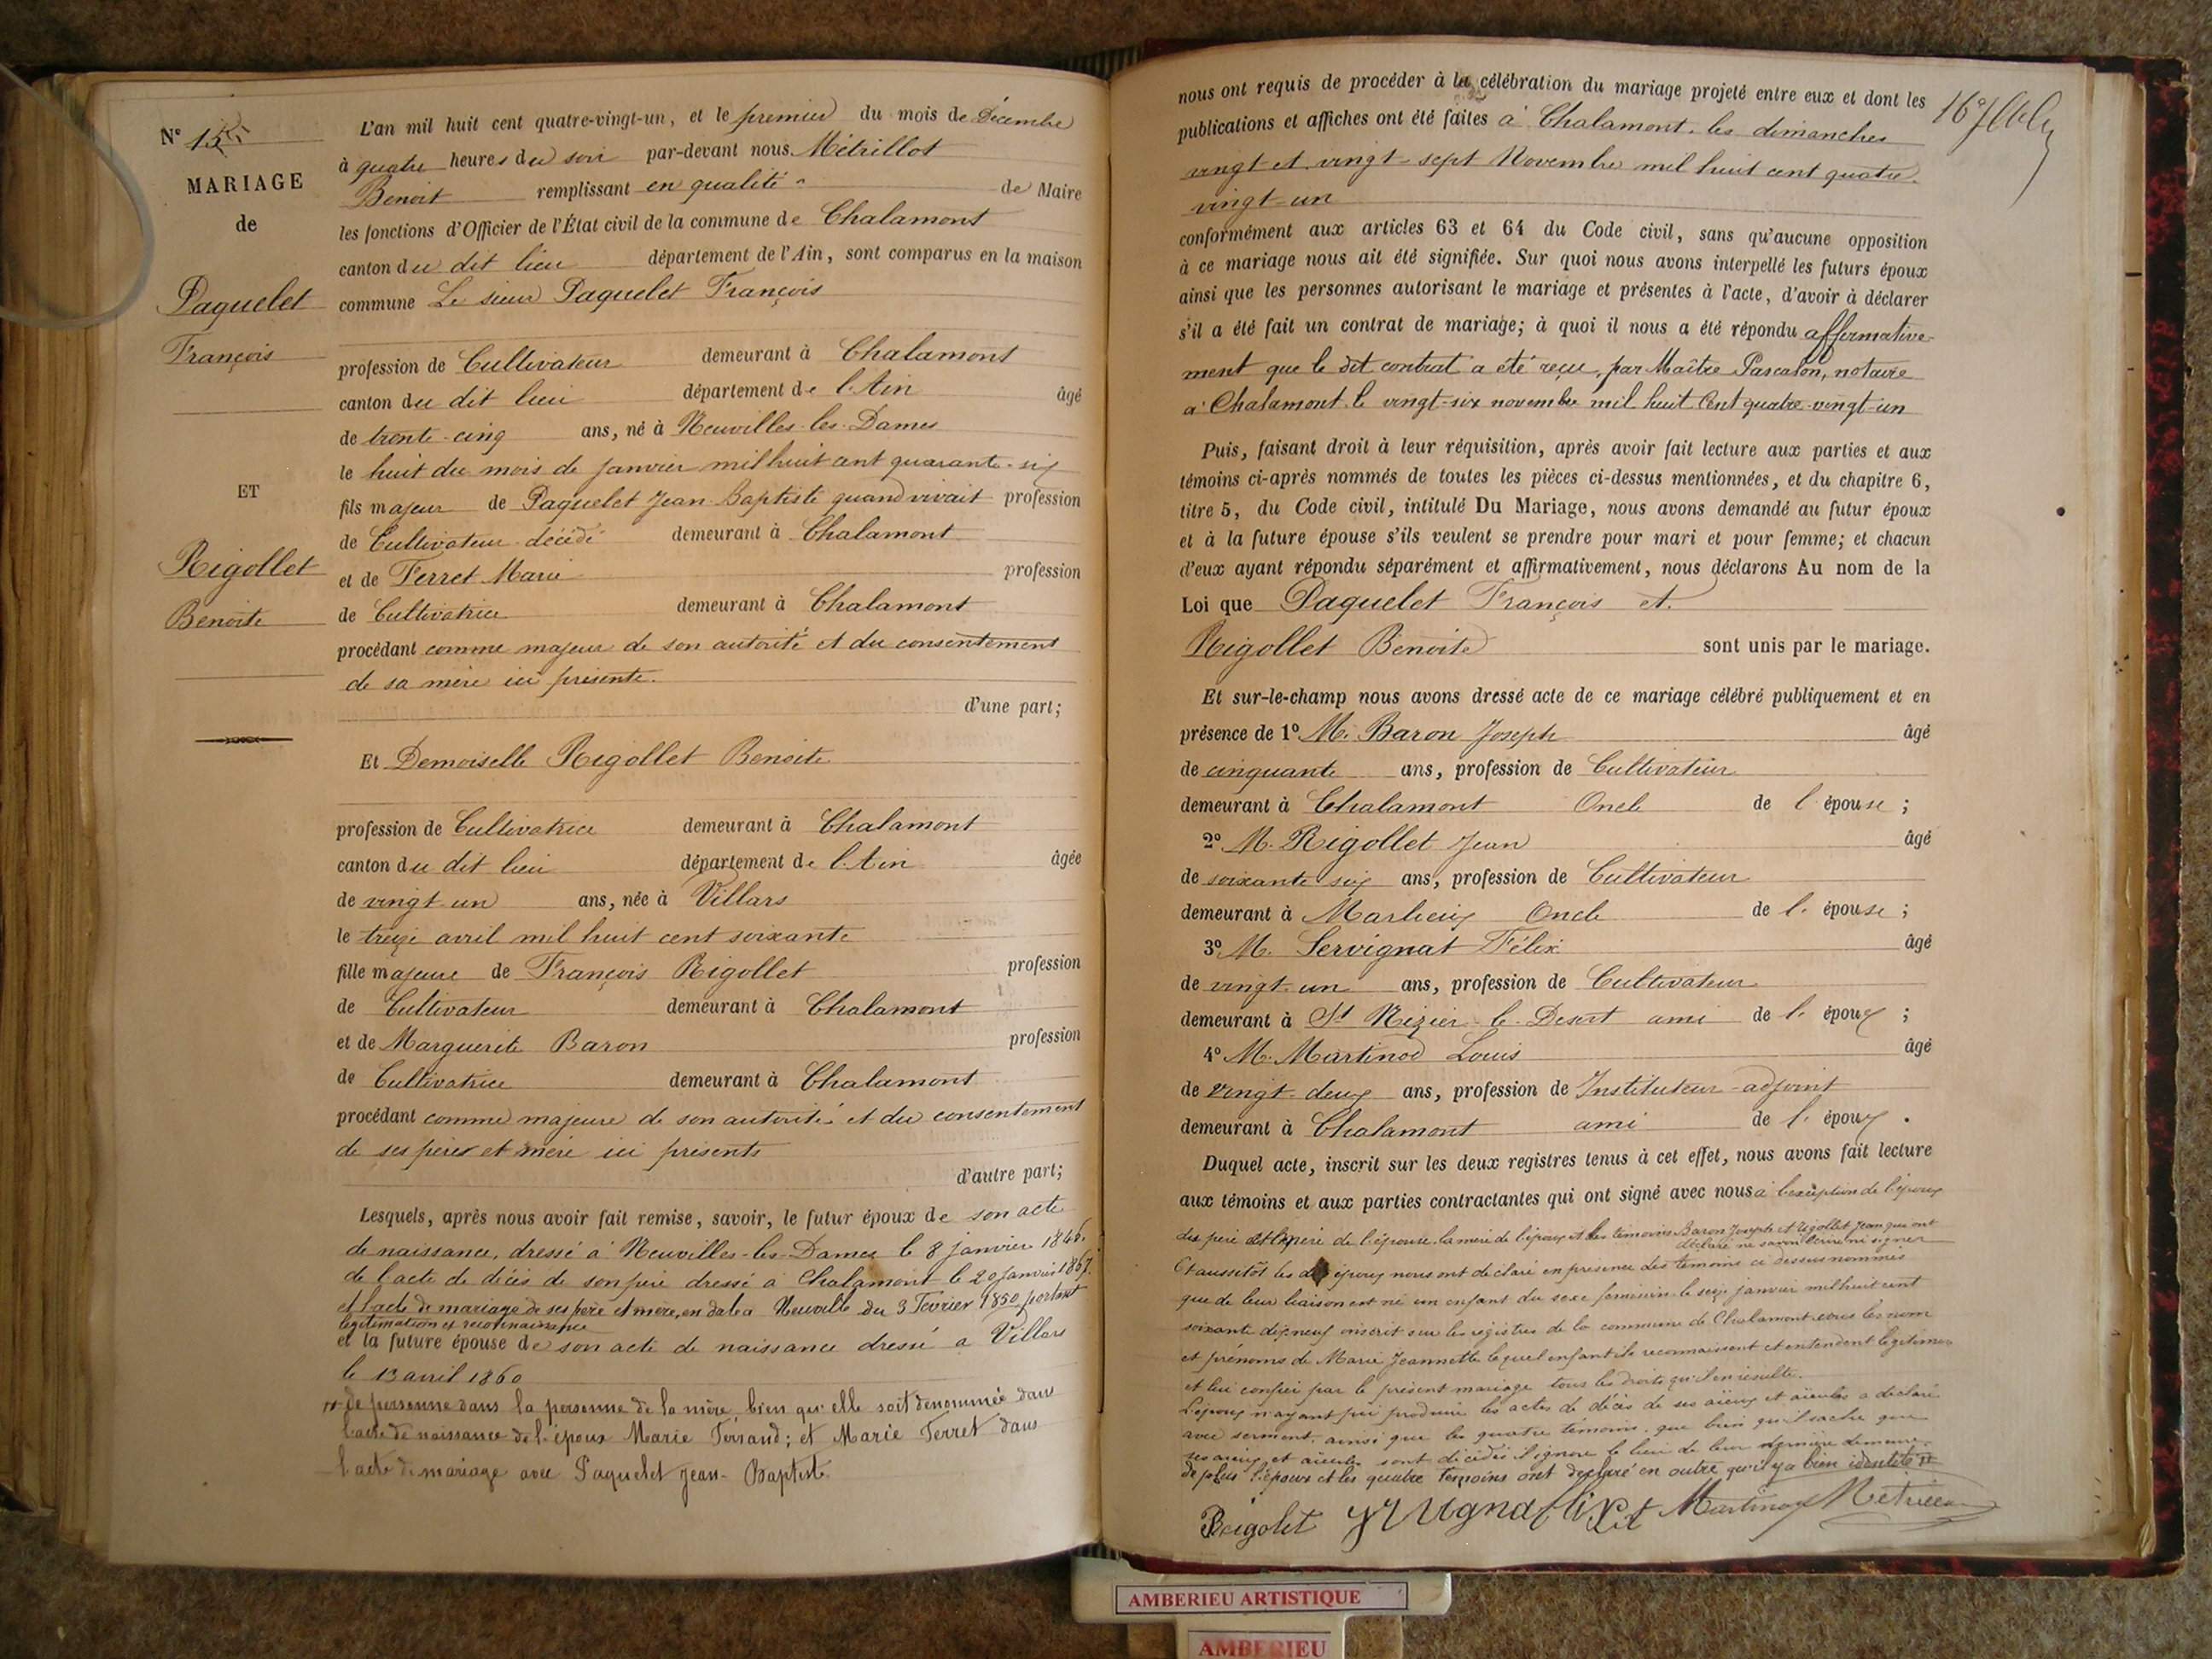 N° 15
MARIAGE
de
Paquelet
François
ET
Rigollet
Benoite
L'an mil huit cent quatre-vingt-un, et le premier du mois de Décembre
à quatre heures du soir par-devant nous Métrillot
Benoit remplissant en qualité de Maire
les fonctions d'Officier de l'État civil de la commune de Chalamont
canton du dit lieu département de l'Ain, sont comparus en la maison
commune Le sieur Paquelet François
profession de Cultivateur demeurant à Chalamont
canton du dit lieu département de l'Ain âgé
de trente-cinq ans, né à Neuvilles-les-Dames
le huit du mois de janvier mil huit cent quarante-six
fils majeur de Paquelet Jean-Baptiste quand vivait profession
de Cultivateur décédé demeurant à Chalamont
et de Ferret Marie profession
de Cultivatrice demeurant à Chalamont
procédant comme majeur de son autorité et du consentement
de sa mère ici présente.
d'une part;
Et Demoiselle Rigollet Benoite
profession de Cultivatrice demeurant à Chalamont
canton du dit lieu département de l'Ain âgée
de vingt-un ans, née à Villars
le treize avril mil huit cent soixante
fille majeure de François Rigollet profession
de Cultivateur demeurant à Chalamont
et de Marguerite Baron profession
de Cultivatrice demeurant à Chalamont
procédant comme majeure de son autorité et du consentement
de ses père et mère ici présents
d'autre part;
Lesquels, après nous avoir fait remise, savoir, le futur époux de son acte
de naissance, dressé à Neuvilles-les-Dames le 8 janvier 1846.
de l'acte de décès de son père dressé à Chalamont le 20 janvier 1867.
et l'acte de mariage de ses père et mère, en date à Neuville du 3 Février 1850 portant
légitimation et reconnaissance
et la future épouse de son acte de naissance dressé à Villars
le 13 avril 1860
de personne dans la personne de la mère, bien qu'elle soit dénommée dans
l'acte de naissance de l'époux Marie Ferrand; et Marie Ferret dans
l'acte de mariage avec Paquelet Jean-Baptiste
nous ont requis de procéder à la célébration du mariage projeté entre eux et dont les
publications et affiches ont été faites à Chalamont les dimanches
vingt et vingt-sept Novembre mil huit cent quatre-
vingt-un
conformément aux articles 63 et 64 du Code civil, sans qu'aucune opposition
à ce mariage nous ait été signifiée. Sur quoi nous avons interpellé les futurs époux
ainsi que les personnes autorisant le mariage et présentes à l'acte, d'avoir à déclarer
s'il a été fait un contrat de mariage; à quoi il nous a été répondu affirmative-
ment que le dit contrat a été reçu par Maître Pascalon, notaire
à Chalamont le vingt-six novembre mil huit Cent quatre-vingt-un
Puis, faisant droit à leur réquisition, après avoir fait lecture aux parties et aux
témoins ci-après nommés de toutes les pièces ci-dessus mentionnées, et du chapitre 6,
titre 5, du Code civil, intitulé Du Mariage, nous avons demandé au futur époux
et à la future épouse s'ils veulent se prendre pour mari et pour femme; et chacun
d'eux ayant répondu séparément et affirmativement, nous déclarons Au nom de la
Loi que Paquelet François et
Rigollet Benoite sont unis par le mariage.
Et sur-le-champ nous avons dressé acte de ce mariage célébré publiquement et en
présence de 1° M. Baron Joseph âgé
de cinquante ans, profession de Cultivateur
demeurant à Chalamont Oncle de l'épouse;
2° M. Rigollet Jean âgé
de soixante six ans, profession de Cultivateur
demeurant à Marlieux Oncle de l'épouse;
3° M. Servignat Félix âgé
de vingt-un ans, profession de Cultivateur
demeurant à St Nizier-le-Desert ami de l'époux;
4° M. Martinod Louis âgé
de vingt-deux ans, profession de Instituteur-adjoint
demeurant à Chalamont ami de l'époux.
Duquel acte, inscrit sur les deux registres tenus à cet effet, nous avons fait lecture
aux témoins et aux parties contractantes qui ont signé avec nous à l'exception de l'époux
père de l'épouse, la mère de l'époux et les témoins Baron Joseph et Rigollet Jean qui ont
déclaré ne savoir écrire ni signer
Et aussitôt les époux nous ont déclaré en présence des témoins ci-dessus nommés
que de leur liaison est né un enfant du sexe féminin le seize janvier mil huit cent
soixante dix neuf inscrit sur les registres de la commune de Chalamont sous les nom
et prénoms de Marie Jeannette lequel enfant ils reconnaissent et entendent légitimer
et lui conférer par le présent mariage tous les droits qui en résulte.
L'époux n'ayant pu produire les actes de décès de ses aïeux et aïeules a déclaré
avec serment, ainsi que les quatre témoins, que bien qu'il sache que
ses aïeux et aïeules sont décédés il ignore le lieu de leur dernière demeure.
De plus l'époux et les quatre témoins ont déclaré en outre qu'il y a bien identité
Rigolet Martinod Métrillot
AMBERIEU ARTISTIQUE
AMBERIEU